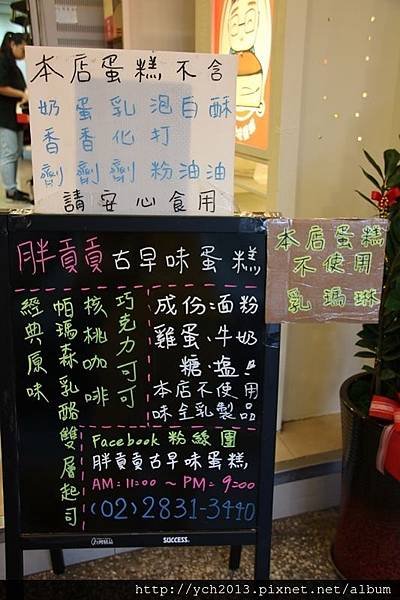 本店蛋糕不含
奶香劑
蛋香劑
乳化劑
泡打粉
白油
酥油
請安心食用
本店蛋糕
不使用
乳瑪琳
胖貢貢古早味蛋糕
巧克力可可
核桃咖啡
帕瑪森乳酪雙層起司
經典原味
成份:面粉
雞蛋、牛奶
糖、塩
本店不使用
味全乳製品
Facebook 粉絲團
胖貢貢古早味蛋糕
AM:11:00 ~ PM:9:00
(02)2831-3440
SUCCESS.
http://ych2013.pixnet.net/album